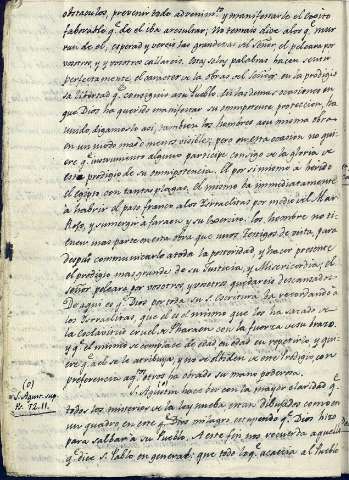 obstaculos, prevenir todo advenim.to y manifestarle el exito
faborable q.e de el iba aresultar; No temais dice alos q.e mur
muran de el, esperad y vereis las grandezas del señor, el peleara por
vosotros, y vosotros callareis. Estas solas palabras hacen sentir
perfectamente el caracter de la obra del señor en la prodigio
sa libertad q.e conseguirá su Pueblo. En las demas ocasiones en
que Dios ha querido manifestar su omnipotencia, proteccion, ha
unido digamoslo asi, tambien los hombres asu misma obra
en un modo mas ó menos visible; pero en esta ocasion no qui
ere q.e instrumento alguno participe consigo de la gloria de
este prodigio de su omnipotencia. El por si mismo á herido
el egipto con tantas plagas, El mismo ba immediatamente
á habrir el paso franco alos Ysraelitas por medio del Mar
Rojo, y sumergir á faraon y su Exercito. los hombres no ti
enen mas parte en esta obra que unos Testigos de vista, para
despues comunicarlo atoda la posteridad, y hacer presente
el prodigio mas grande de su Justicia, y Misericordia; el
señor peleara por vosotros, y vosotros quedareis descansados
De aqui es q.e Dios en toda su S. Escritura ba recordando á
los Ysraelitas, que él es el mismo que los ha sacado de
la esclavitud cruel de Pharaon con la fuerza de su brazo,
y q.e el mismo se complace de edad en edad en repetirlo y qui
ere q.e á el se le atribuya, y no se olviden de este Prodigio con
preferencia aq.tos otros ha obrado su mano poderosa.
(o) S. Agustin hace ver con la mayor claridad q.e
(o)
S. Agust. sup.
Ps. 72. 11.
todos los misterios de la ley nueba estan dibujados como en
un quadro en este q.e Dios milagro estupendo q.e Dios hizo
para salbar á su Pueblo. A este fin nos recuerda aquello
q.e dice S. Pablo en general: que todo loq.e acaecia al Pueblo